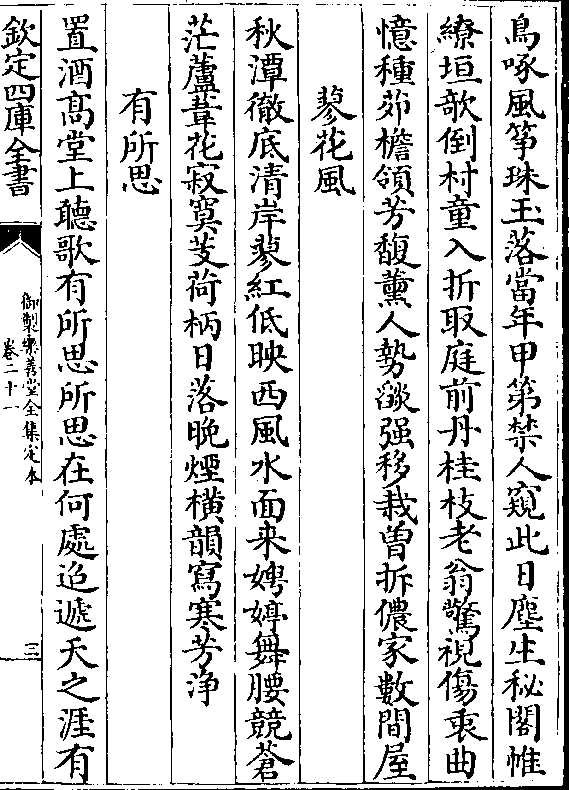 鳥啄風筝珠玉落當年甲第禁人窺此日塵生秘閣帷
繚垣欹倒村童入折取庭前丹桂枝老翁驚視傷衷曲
憶種茆檐領芳馥薰人勢燄强移栽曽拆儂家數間屋
蓼花風
秋潭徹底清岸蓼紅低映西風水面来娉婷舞腰競蒼
茫蘆葦花寂寞芰荷柄日落晩煙横韻寫寒芳浄
有所思
置酒髙堂上聽歌有所思所思在何處迢遞天之涯有
欽定四庫全書
御製樂善堂全集定本
卷二十一
三